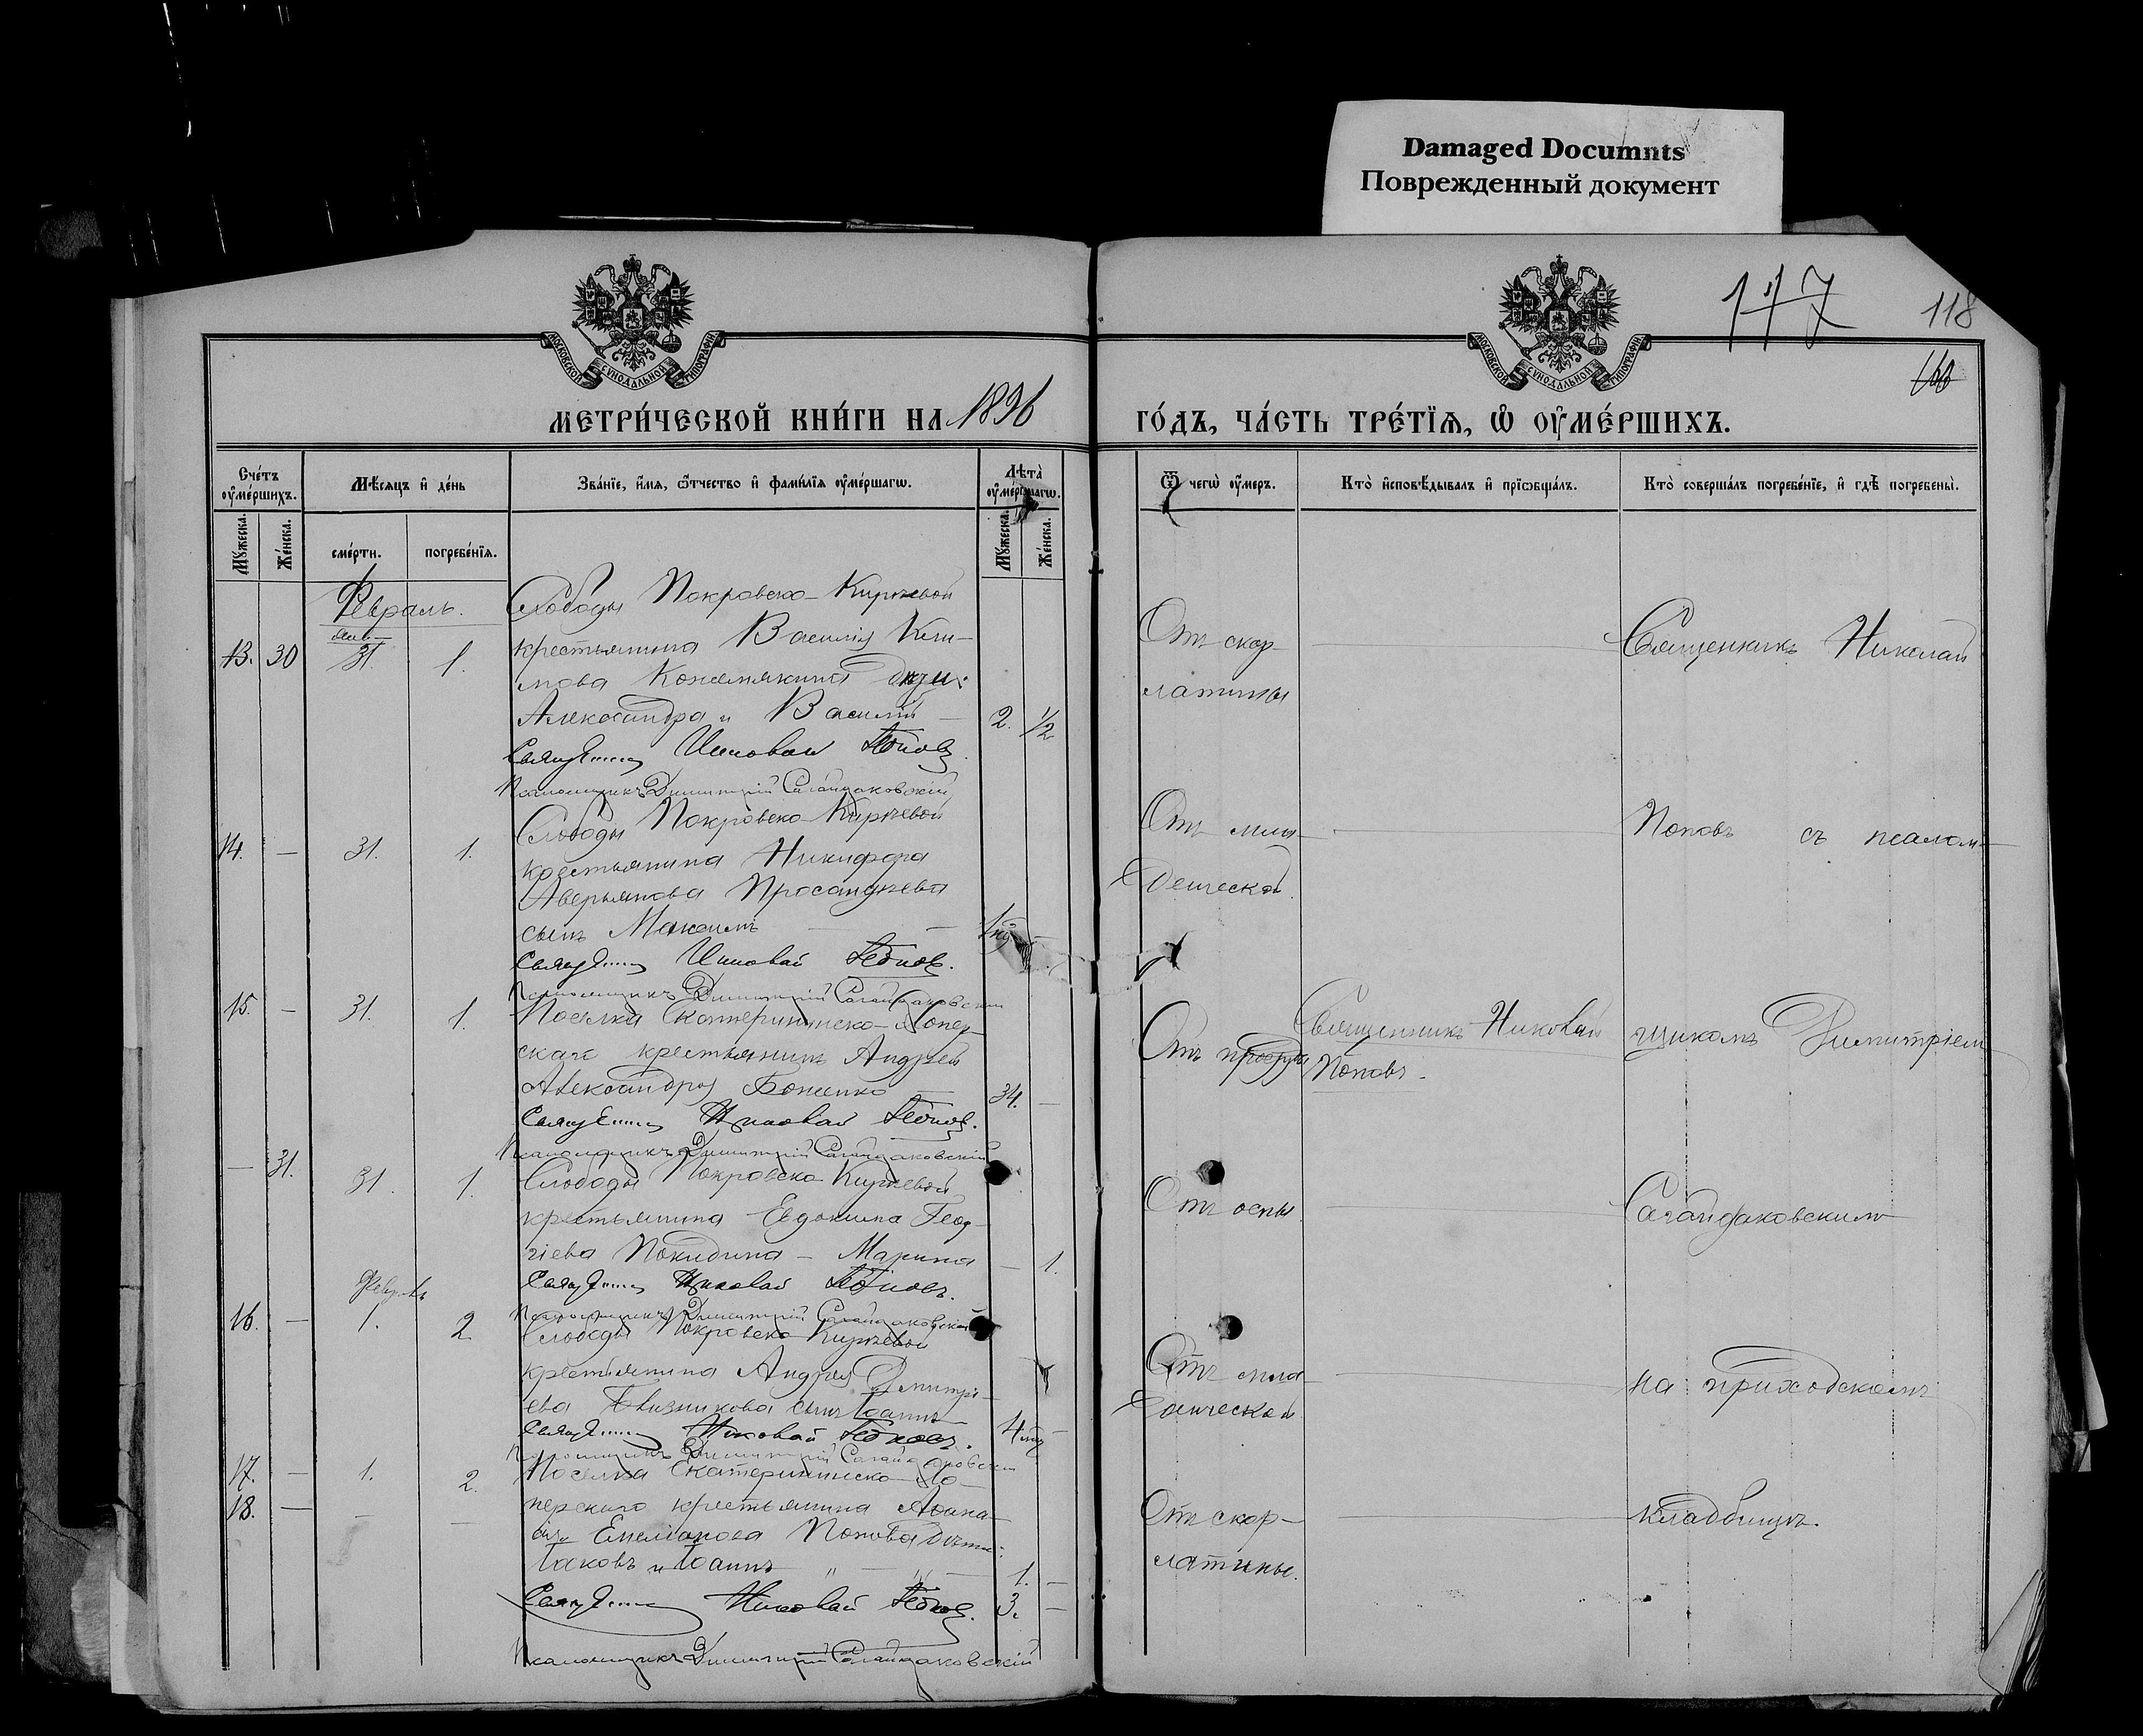 Damaged Documnts
Поврежденный документ
117
118
МОСКОВСКОЙ СУНОДАЛЬНОЙ ТИПОГРАФІИ
МОСКОВСКОЙ СУНОДАЛЬНОЙ ТИПОГРАФІИ
МЕТРИ́ЧЕСКОЙ КНИ́ГИ НА 1896
ГО́ДЪ, ЧА́СТЬ ТРЕ́ТІѦ, Ѡ҆ ОУ҆МЕ́РШИХЪ.
Сче́тъ оу҆ме́ршихъ.
Мѣ́сяцъ и҆ де́нь
Зва́нїе, и҆́мѧ, ѻ҆́тчество и҆ фами́лїѧ оу҆ме́ршагѡ.
Лѣ́та оу҆ме́ршагѡ.
Ѿ чегѡ̀ оу҆́меръ.
Кто̀ и҆сповѣ́дывалъ и҆ прїѡбща́лъ.
Кто̀ соверша́лъ погребе́нїе, и҆ гдѣ̀ погребены̀.
Мꙋ́жеска.
Же́нска.
сме́рти.
погребе́нїѧ.
Мꙋ́жеска.
Же́нска.
Февраль.
Слободы Покровско-Киреевой
13. 30 31. 1. крестьянина Василія Кли-
мова Кожемякина дѣти:
Александра и Василій — 2. 1/2
Священникъ Николай Поповъ
Псаломщикъ Димитрій Сагайдаковскій
Отъ скар-
латины
Священникъ Николай
Слободы Покровско-Киреевой
14. — 31. 1. крестьянина Никифора
Аверьянова
сынъ Максимъ —
Священникъ Николай Поповъ.
Псаломщикъ Димитрій Сагайдаковскій
Отъ мла-
денческой
Поповъ съ псалом-
15. — 31. 1. Поселка Екатерининско-Хопер-
скаго крестьянинъ Андрей
Александровъ Боженко — 34. —
Священникъ Николай Поповъ.
Псаломщикъ Димитрій Сагайдаковскій
Отъ простуды
Священникъ Николай
Поповъ.
щикомъ Димитріем
— 31. 31. 1. Слободы Покровско-Киреевой
крестьянина Евдокима Геор-
гіева Покидина — Марина — 1.
Священникъ Николай Поповъ.
Псаломщикъ Димитрій Сагайдаковскій
Отъ оспы.
Сагайдаковскимъ
16. — 1. 2. Слободы Покровско-Киреевой
крестьянина Андрея Димитрі-
ева сынъ Іоаннъ
Священникъ Николай Поповъ.
Псаломщикъ Димитрій Сагайдаковскій
Отъ мла-
денческой
на приходскомъ
17. — 1. 2. Поселка Екатерининско-Хо-
18. — — — перскаго крестьянина Аѳана-
сія Емеліанова Попова дѣти:
Іаковъ и Іоаннъ " — " — 1. —
Священникъ Николай Поповъ. 3. —
Псаломщикъ Димитрій Сагайдаковскій
Отъ скар-
латины.
кладбищѣ.